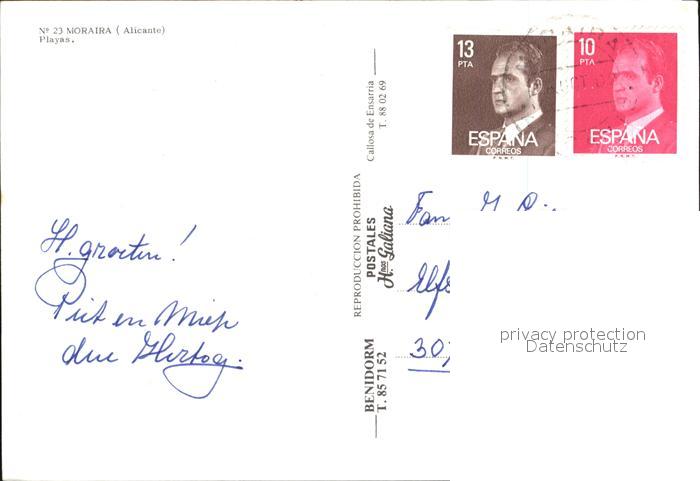 Nº 23 MORAIRA ( Alicante)
Playas.
H. groeten!
Piet en Miep
den Hertog.
REPRODUCCION PROHIBIDA
Callosa de Ensarria
T. 88 02 69
POSTALES
Hnos Galiana
BENIDORM
T. 85 71 52
13
PTA
ESPAÑA
CORREOS
F.N.M.T.
10
PTA
ESPAÑA
CORREOS
F.N.M.T.
Fam M D.
30
privacy protection
Datenschutz